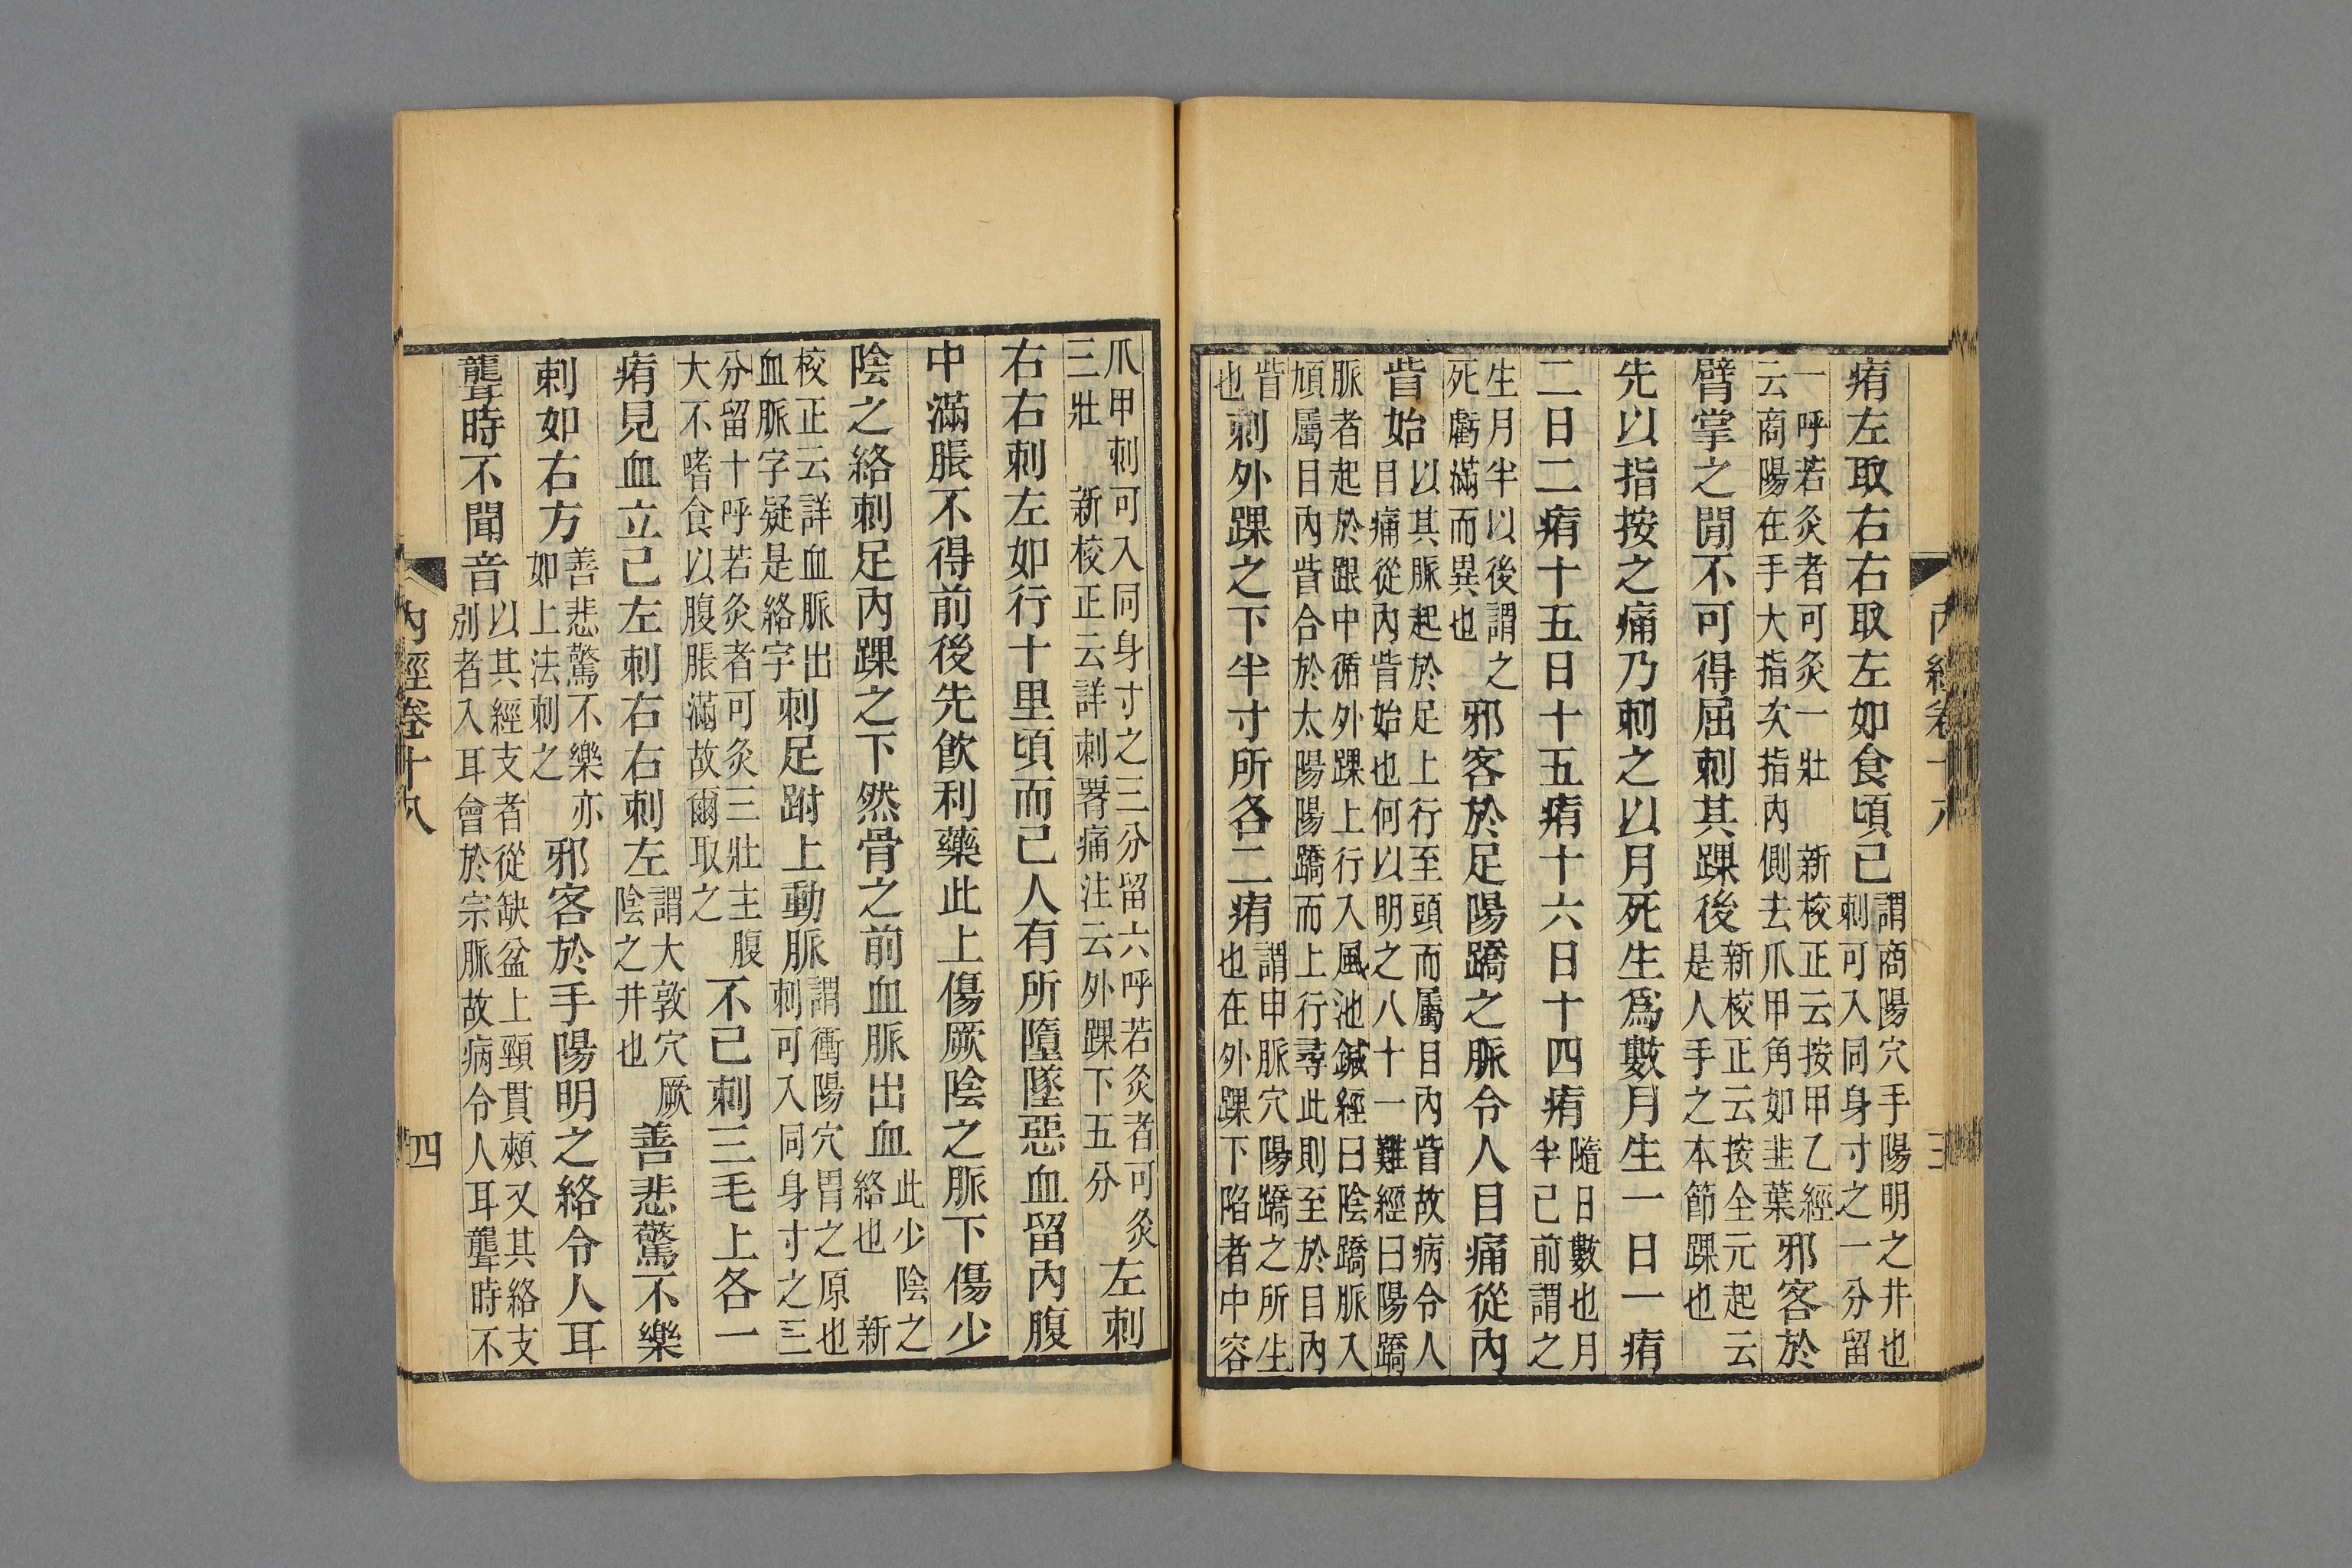 內經卷十八 三
痏左取右右取左如食頃已謂商陽穴手陽明之井也刺可入同身寸之一分留
一呼若灸者可灸一壯 新校正云按甲乙經云商陽在手大指次指內側去爪甲角如韭葉邪客於
臂掌之閒不可得屈刺其踝後新校正云按全元起云是人手之本節踝也
先以指按之痛乃刺之以月死生爲數月生一日一痏
二日二痏十五日十五痏十六日十四痏隨日數也月半已前謂之
生月半以後謂之死虧滿而異也邪客於足陽蹻之脈令人目痛從內
眥始以其脈起於足上行至頭而屬目內眥故病令人目痛從內眥始也何以明之八十一難經曰陽蹻
脈者起於跟中循外踝上行入風池鍼經曰陰蹻脈入頄屬目內眥合於太陽陽蹻而上行尋此則至於目內
眥也刺外踝之下半寸所各二痏謂申脈穴陽蹻之所生也在外踝下陷者中容
爪甲刺可入同身寸之三分留六呼若灸者可灸三壯 新校正云詳刺署痛注云外踝下五分左刺
右右刺左如行十里頃而已人有所墮墜惡血留內腹
中滿脹不得前後先飲利藥此上傷厥陰之脈下傷少
陰之絡刺足內踝之下然骨之前血脈出血此少陰之絡也 新
校正云詳血脈出血脈字疑是絡字刺足跗上動脈謂衝陽穴胃之原也刺可入同身寸之三
分留十呼若灸者可灸三壯主腹大不嗜食以腹脹滿故爾取之不已刺三毛上各一
痏見血立已左刺右右刺左謂大敦穴厥陰之井也善悲驚不樂
刺如右方善悲驚不樂亦如上法刺之邪客於手陽明之絡令人耳
聾時不聞音以其經支者從缺盆上頸貫頰又其絡支別者入耳會於宗脈故病令人耳聾時不
內經卷十八 四